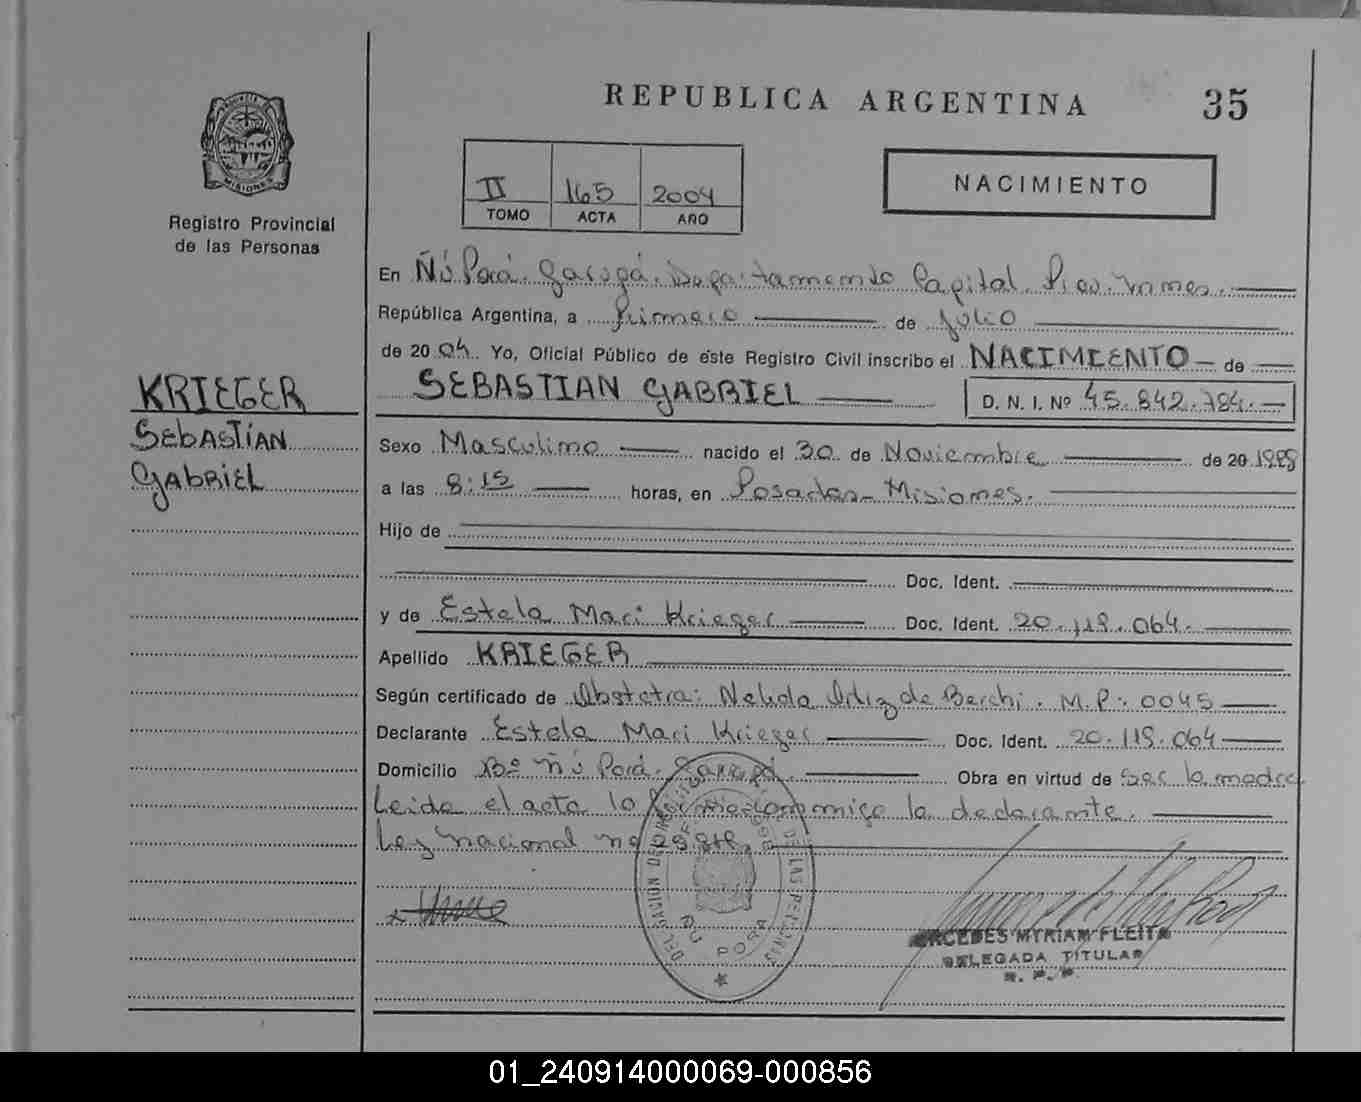 REPUBLICA ARGENTINA
35
MISIONES
Registro Provincial
de las Personas
II 165 2004
TOMO ACTA AÑO
NACIMIENTO
En Ñú Porá. Garupá. Departamento Capital. Prov. Mnes.
República Argentina, a primero de Julio
de 2004. Yo, Oficial Público de este Registro Civil inscribo el NACIMIENTO de
SEBASTIAN GABRIEL D. N. I. Nº 45.842.784.
KRIEGER
SEBASTIAN
GABRIEL
Sexo Masculino nacido el 30 de Noviembre de 20 1988
a las 8:15 horas, en Posadas - Misiones.
Hijo de
Doc. Ident.
y de Estela Mari Krieger Doc. Ident. 20.118.064.
Apellido KRIEGER
Según certificado de Obstetra: Nelida Ortiz de Berchi. M.P: 0045
Declarante Estela Mari Krieger Doc. Ident. 20.118.064
Domicilio Bº Ñú Porá. Garupá. Obra en virtud de Ser la madre
Leida el acta la firma conmigo la declarante.
Ley nacional nº
DE LAS PERSONAS
ÑU PORA
MERCEDES MYRIAM FLEITA
DELEGADA TITULAR
R. P. P.
01_240914000069-000856